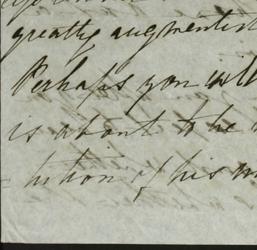 greatly augmented
Perhaps you will
is about to be
- tition of his